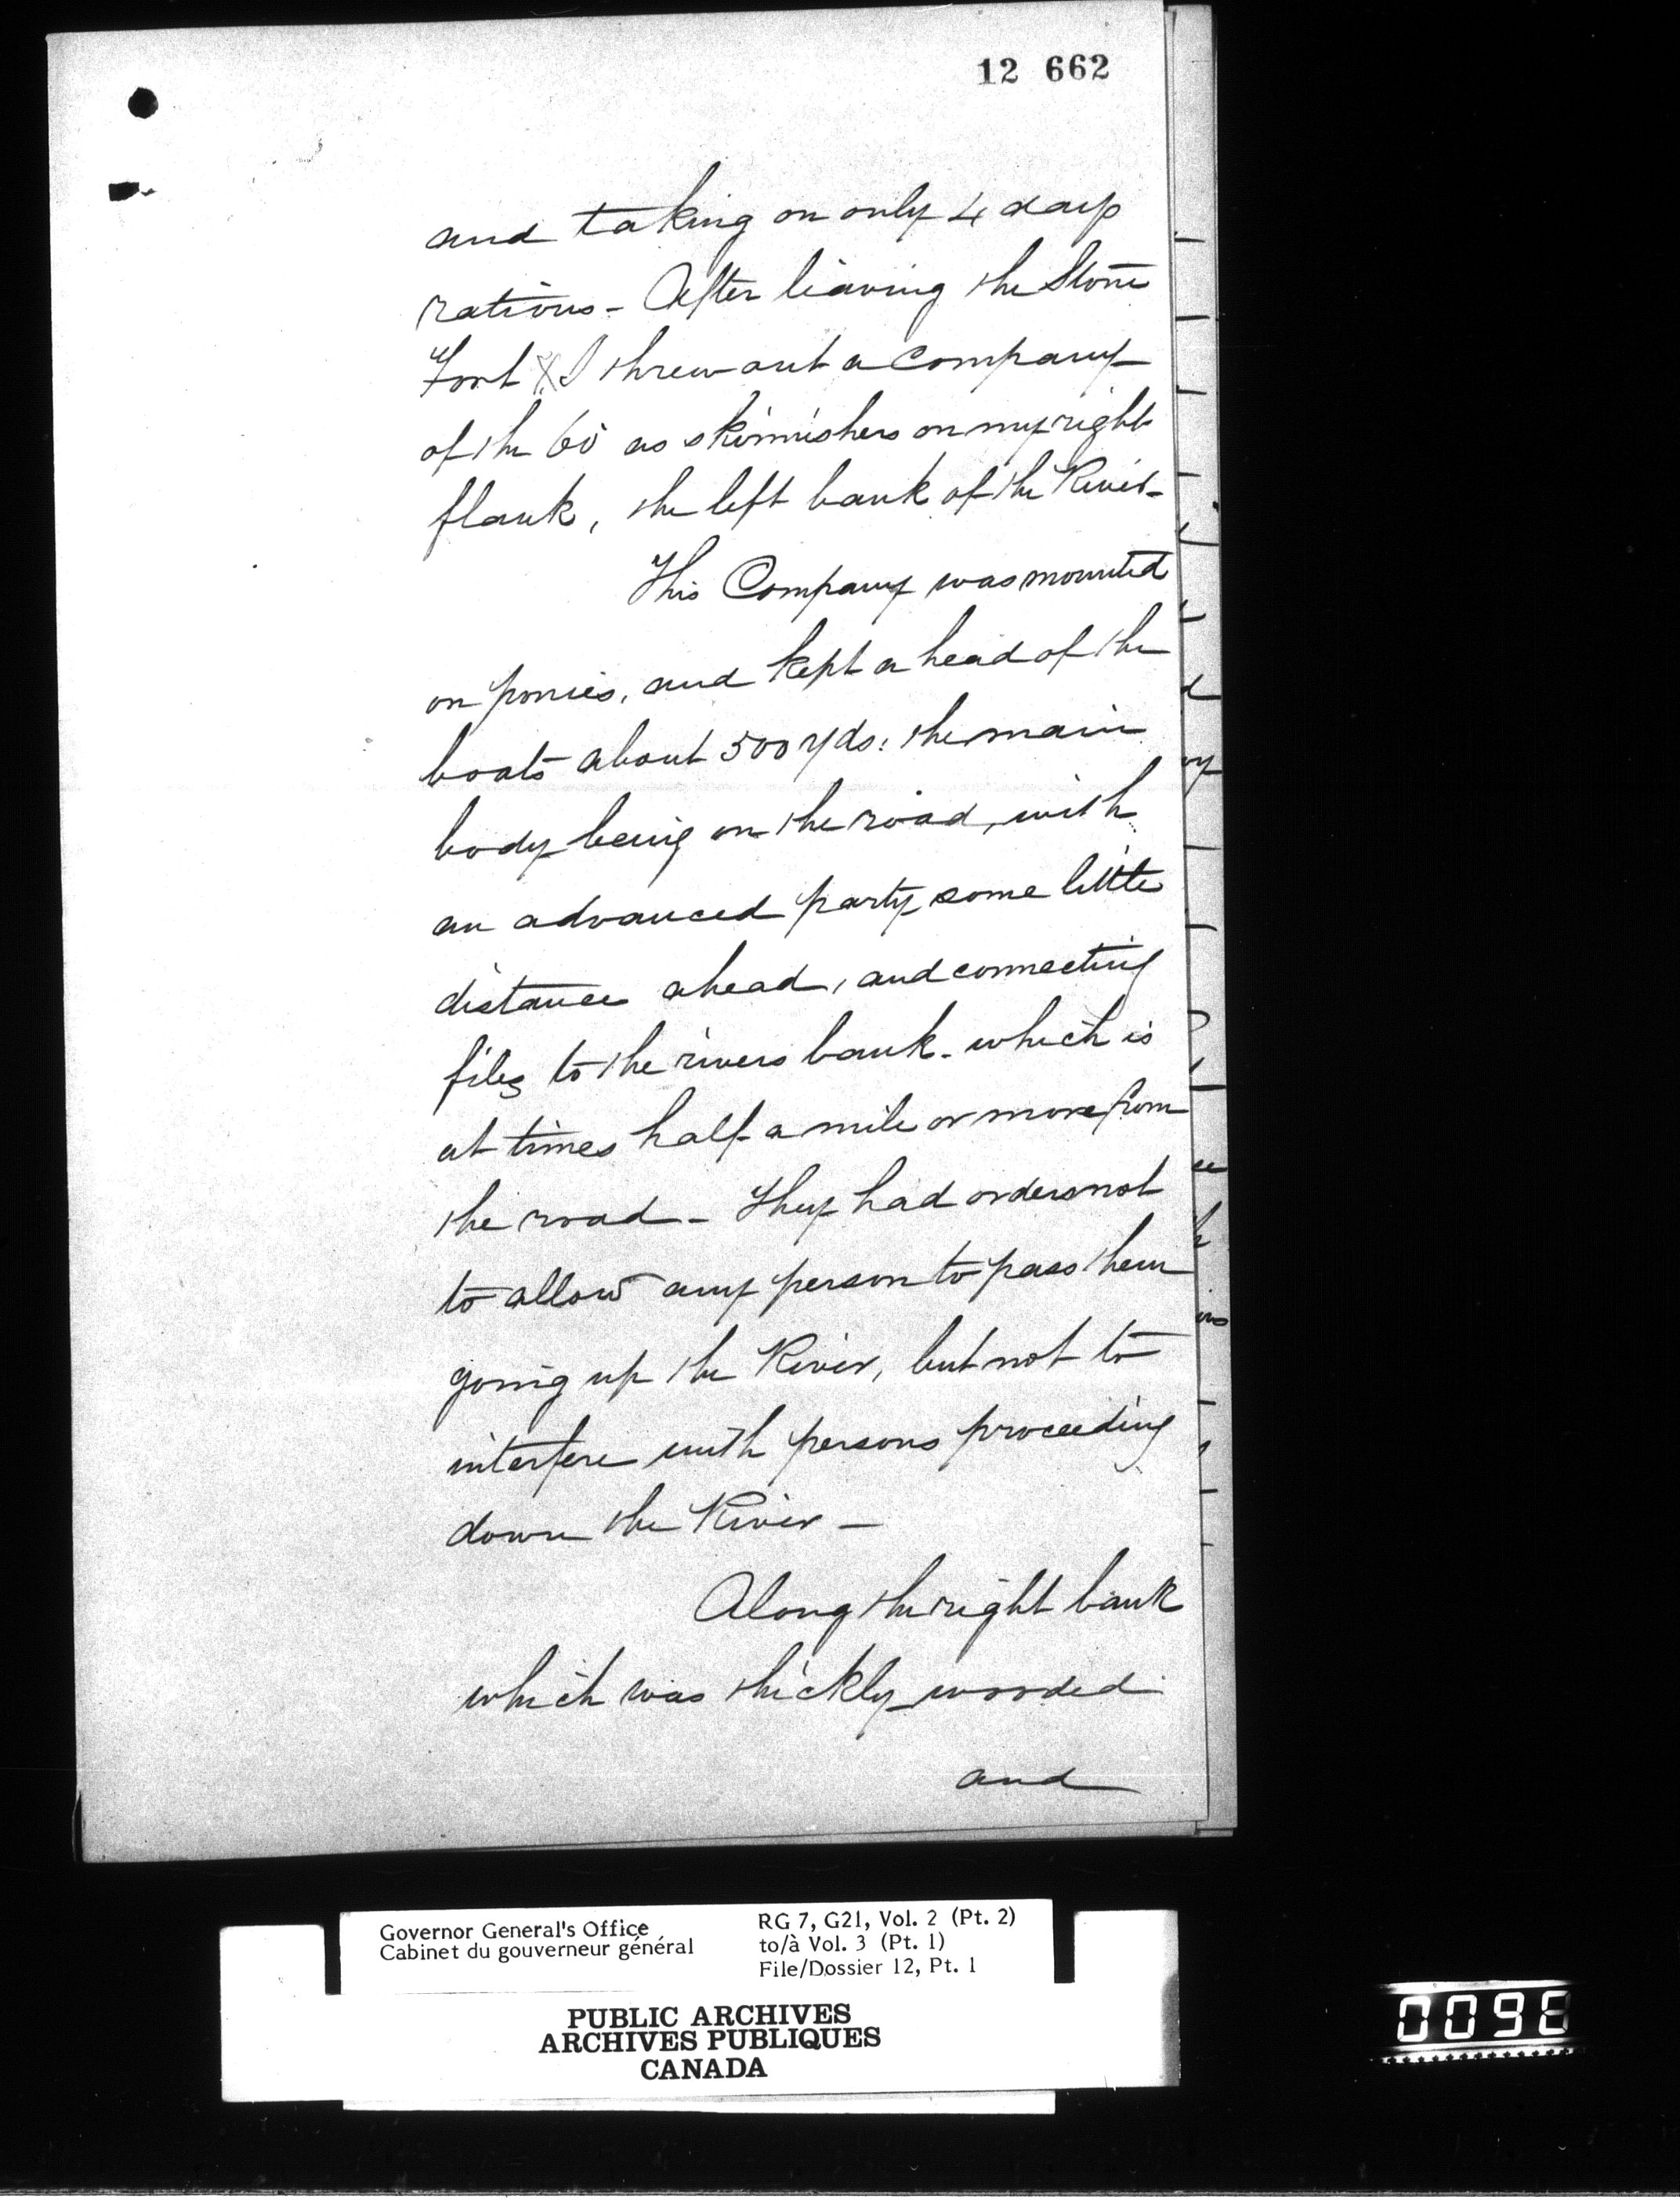 12 662
and taking on only 4 days
rations - After leaving the Stone
Fort I threw out a company
of the 60 as skirmishers on my right
flank, the left bank of the River -
This Company was mounted
on ponies, and kept ahead of the
boats about 500 yds: the main
body being on the road, with
an advanced party some little
distance ahead, and connecting
files to the rivers bank - which is
at times half a mile or more from
the road - They had orders not
to allow any person to pass them
going up the River, but not to
interfere with persons proceeding
down the River -
Along the right bank
which was thickly wooded
and
Governor General's Office
Cabinet du gouverneur général
RG 7, G21, Vol. 2 (Pt. 2)
to/à Vol. 3 (Pt. 1)
File/Dossier 12, Pt. 1
PUBLIC ARCHIVES
ARCHIVES PUBLIQUES
CANADA